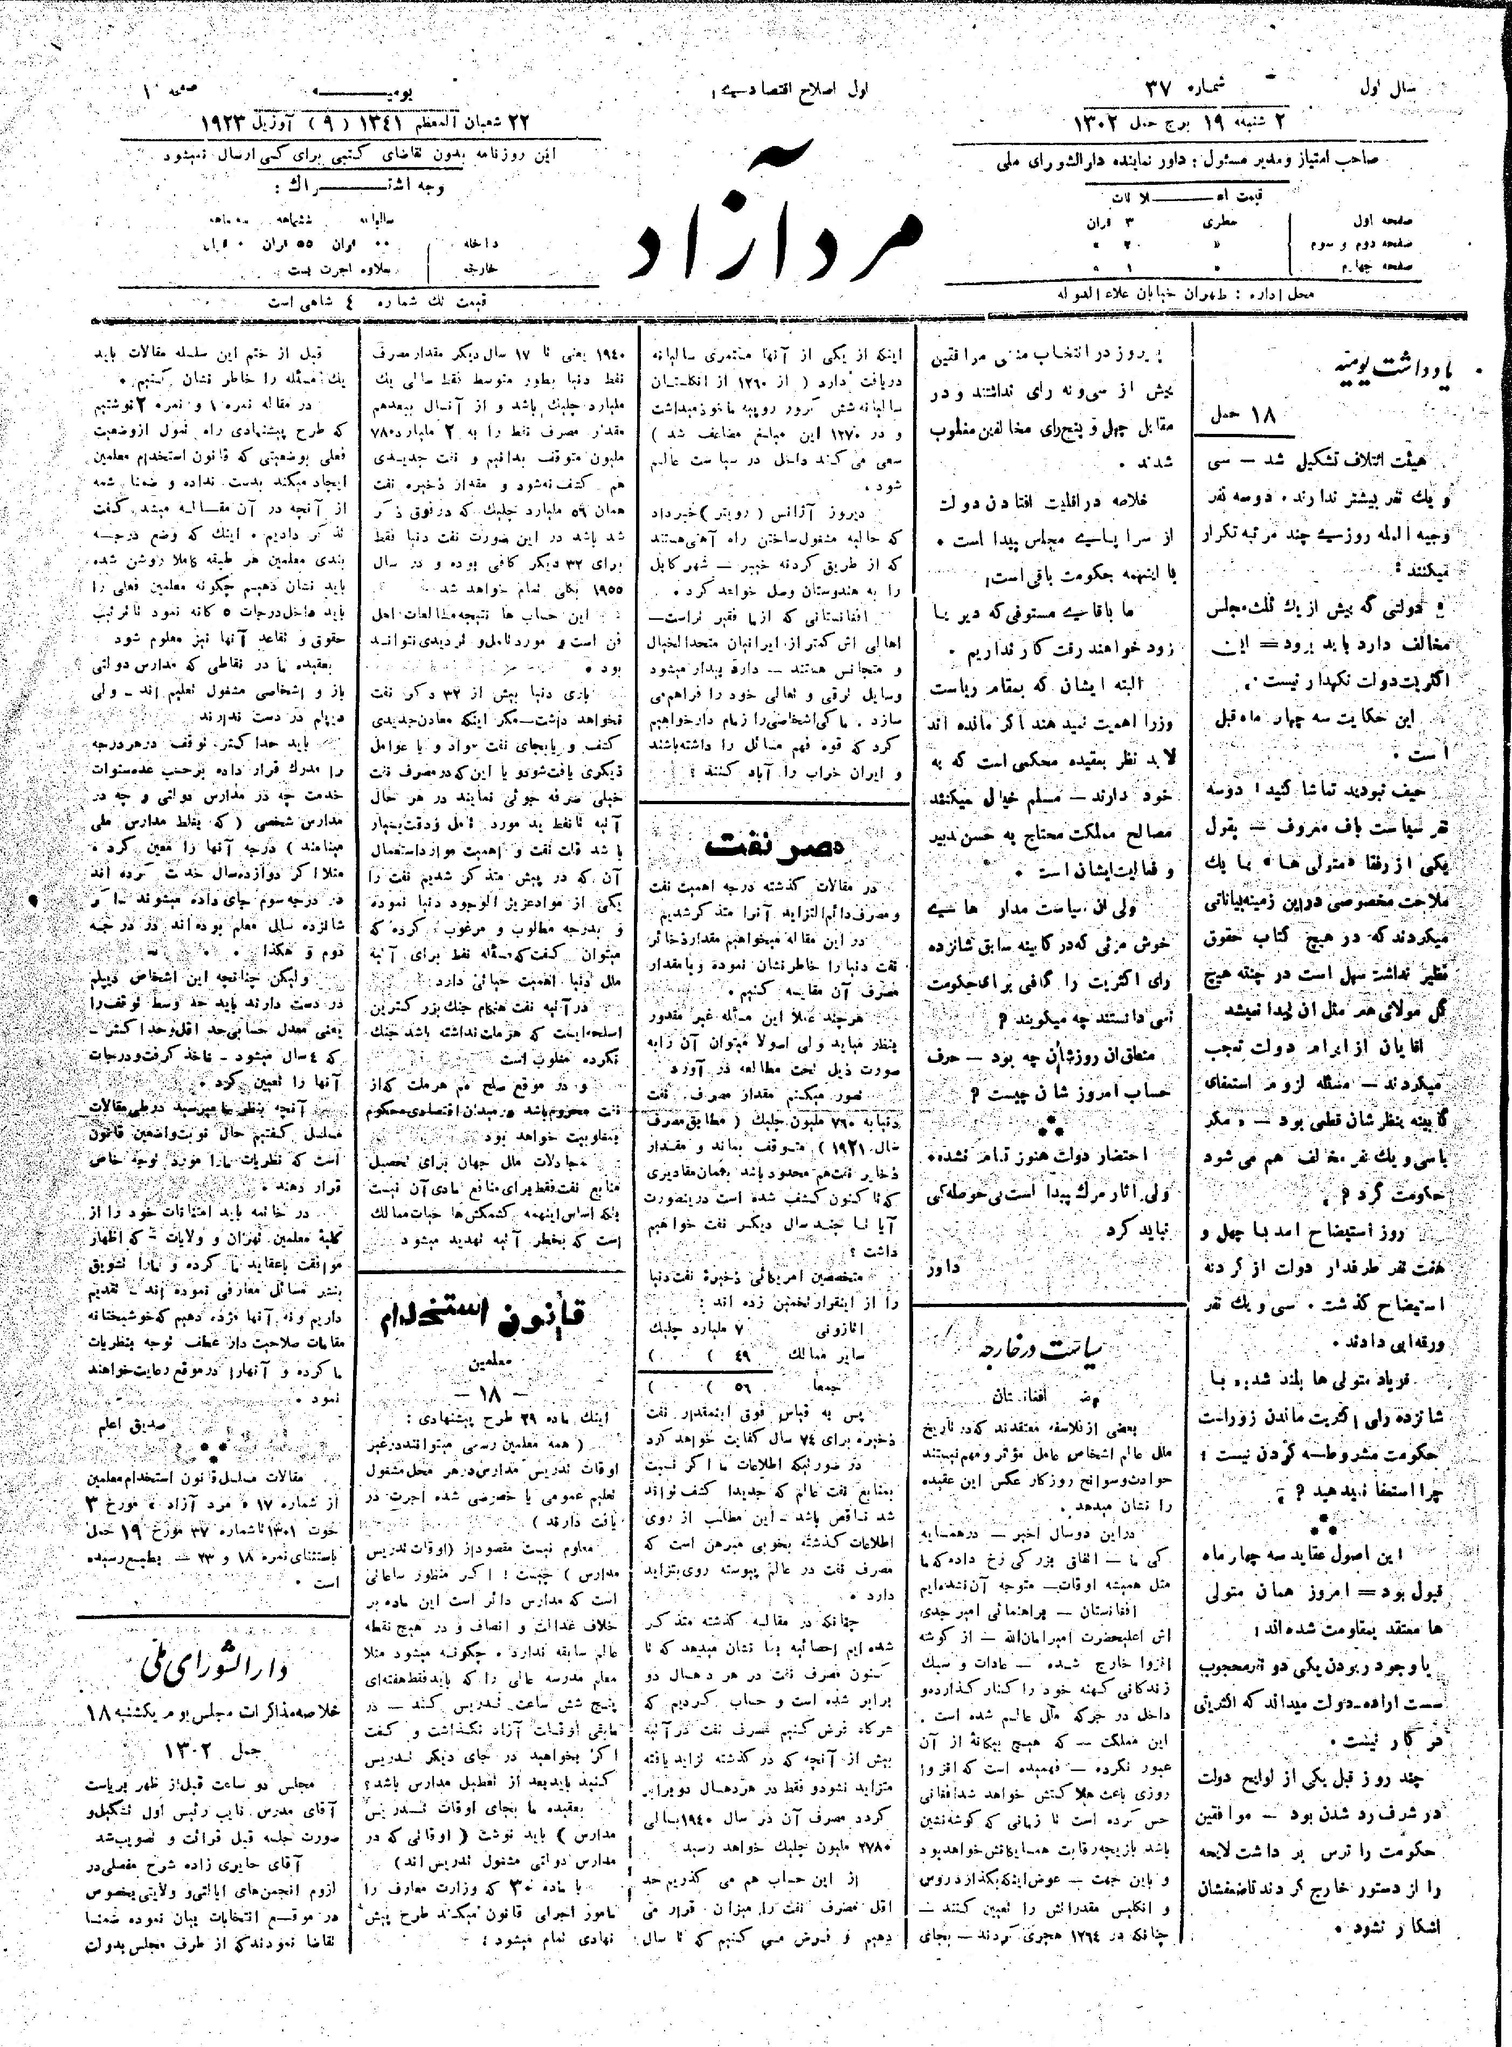 سال اول
شماره ۳۷
اول اصلاح اقتصادی
یومیه
صفحه ۱
۲ شنبه ۱۹ برج حمل ۱۳۰۲
۲۲ شعبان المعظم ۱۳۴۱ (۹) آوریل ۱۹۲۳
صاحب امتیاز و مدیر مسئول : داور نماینده دارالشورای ملی
قیمت اعلانات
صفحه اول سطری ۳ قران
صفحه دوم و سوم » ۲۰ »
صفحه چهارم » ۱ »
محل اداره : طهران خیابان علاءالدوله
مرد آزاد
این روزنامه بدون تقاضای کتبی برای کسی ارسال نمیشود
وجه اشتراک :
سالیانه ششماهه سه ماهه
داخله قران ۵۵ قران
خارجه بعلاوه اجرت پست
قیمت تك شماره ٤ شاهی است
یادداشت یومیه
۱۸ حمل
هیئت ائتلاف تشکیل شد — سی
و یك نفر بیشتر ندارند . دوسه نفر
وجیه المله روزی چند مرتبه تکرار
میکنند :
دولتی که بیش از یك ثلث مجلس
مخالف دارد باید برود = این
اکثریت دولت نگهدار نیست .
این حکایت سه چهار ماه قبل
است .
حیف نبودید تماشا کنید ! دوسه
نفر سیاست باف معروف — بقول
یکی از رفقا «متولی ها» با یك
ملاحت مخصوصی در این زمینه بیاناتی
میکردند که در هیچ کتاب حقوق
نظیر نداشت سهل است در چنته هیچ
گل مولائی هم مثل آن پیدا نمیشد
آقایان از ابرام دولت تعجب
میکردند — مسئله لزوم استعفای
کابینه بنظرشان قطعی بود — مگر
با سی و یك نفر مخالف هم می شود
حکومت کرد ؟
روز استیضاح آمد با چهل و
هفت نفر طرفدار دولت از گردنه
استیضاح گذشت . سی و یك نفر
ورقه آبی دادند .
فریاد متولی ها بلند شد با
شانزده رای اکثریت ماندن زوراست
حکومت مشروطه کردن نیست ؛
چرا استعفا نمیدهید ؟
این اصول عقاید سه چهار ماه
قبول بود = امروز همان متولی
ها معتقد بمقاومت شده اند :
با وجود ربودن یکی دو نفر محجوب
سست اراده — دولت میداند که اکثریتی
در کار نیست .
چند روز قبل یکی از لوایح دولت
در شرف رد شدن بود — موافقین
حکومت را ترس بر داشت لایحه
را از دستور خارج کردند تا ضعفشان
آشکار نشود .
پریروز در انتخاب منشی موافقین
بیش از سی و نه رای نداشتند و در
مقابل چهل و پنج رای مخالفین مغلوب
شدند .
خلاصه در اقلیت افتادن دولت
از سراپای مجلس پیدا است .
با اینهمه حکومت باقی است ؛
ما با قای مستوفی که دیر یا
زود خواهند رفت کار نداریم .
البته ایشان که بمقام ریاست
وزرا اهمیت نمیدهند اگر مانده اند
لابد نظر بعقیده محکمی است که به
خود دارند — مسلم خیال میکنند
مصالح مملکت محتاج به حسن تدبیر
و فعالیت ایشان است .
ولی آن سیاست مدار های
خوش مزئی که در کابینه سابق شانزده
رای اکثریت را کافی برای حکومت
نمی دانستند چه میگویند ؟
منطق آن روزشان چه بود — حرف
حساب امروز شان چیست ؟
احتضار دولت هنوز تمام نشده .
ولی آثار مرگ پیدا است بی حوصله گی
نباید کرد
داور
سیاست در خارجه
وضع افغانستان
بعضی از فلاسفه معتقدند که در تاریخ
ملل عالم اشخاص عامل مؤثر و مهم نیستند
حوادث و سوانح روزگار عکس این عقیده
را نشان میدهد .
در این دو سال اخیر — در همسایه
گی ما — اتفاق بزرگی رخ داده که ما
مثل همیشه اوقات — متوجه آن نشده ایم
افغانستان — براهنمائی امیر جدی
اش اعلیحضرت امیر امان الله — از گوشه
انزوا خارج شده — عادات و سبك
زندگانی کهنه خود را کنار گذارده و
داخل در جرگه ملل عالم شده است .
این مملکت — که هیچ بیگانه از آن
عبور نکرده — فهمیده است که انزوا
روزی باعث هلاکتش خواهد شد افغانی
حس کرده است تا زمانی که گوشه نشین
باشد بازیچه رقابت همسایگانش خواهد بود
و باین جهت — عوض اینکه بگذارد روس
و انگلیس مقدراتش را تعیین کنند —
چنانکه در ۱۲٦٤ هجری کردند — بجای
اینکه از یکی از آنها مستمری سالیانه
دریافت دارد ( از ۱۲٦۰ از انگلستان
سالیانه شش کرور روپیه ماخوذ میداشت
و در ۱۲۷۰ این مبلغ مضاعف شد )
سعی می کند داخل در سیاست عالم
شود .
دیروز آژانس ( رویتر ) خبر داد
که حالیه مشغول ساختن راه آهنی هستند
که از طریق گردنه خیبر — شهر کابل
را به هندوستان وصل خواهد کرد .
افغانستانی که از ما فقیر تر است —
اهالی اش کمتر از ایرانیان متحدالخیال
و متجانس هستند — دارد بیدار میشود
وسایل ترقی و تعالی خود را فراهم می
سازد . ما کی اشخاصی را زمام دار خواهیم
کرد که قوه فهم مسائل را داشته باشند
و ایران خراب را آباد کنند ؟
عصر نفت
در مقالات گذشته درجه اهمیت نفت
و مصرف دائم التزاید آنرا متذکر شدیم
در این مقاله میخواهیم مقدار ذخائر
نفت دنیا را خاطر نشان نموده و با مقدار
مصرف آن مقایسه کنیم .
هر چند عملا این مسأله غیر مقدور
بنظر میآید ولی اصولا میتوان آن را به
صورت ذیل تحت مطالعه در آورد
تصور میکنم مقدار مصرف نفت
دنیا به ۷٦۰ ملیون چلیك ( مطابق مصرف
سال ۱۹۲۱ ) متوقف بماند و مقدار
ذخایر نفت هم محدود باشد بهمان مقادیری
که تا کنون کشف شده است در اینصورت
آیا تا چند سال دیگر نفت خواهیم
داشت ؟
متخصصین امریکائی ذخیرهٔ نفت دنیا
را از اینقرار تخمین زده اند :
اتازونی ۷ ملیارد چلیك
سایر ممالك ٤۹ ( )
جمعا ۵٦ ( )
پس به قیاس فوق اینمقدار نفت
ذخیره برای ۷٤ سال کفایت خواهد کرد
در صورتیکه اطلاعات ما اگر نسبت
بمنابع نفت عالم که جدیدا کشف تواند
شد ناقص باشد — این مطالب از روی
اطلاعات گذشته بخوبی مبرهن است که
مصرف نفت در عالم پیوسته روی بتزاید
دارد .
چنانکه در مقاله گذشته متذکر
شده ایم احصائیه بما نشان میدهد که تا
کنون مصرف نفت در هر ده سال دو
برابر شده است و حساب کردیم که
هرگاه فرض کنیم مصرف نفت در آتیه
بیش از آنچه که در گذشته تزاید یافته
متزاید نشود و فقط در هر ده سال دو برابر
گردد مصرف آن در سال ۱۹٤۰ بسالی
۲۷۸۰ ملیون چلیك خواهد رسید
از این حساب هم می گذریم حد
اقل مصرف نفت را میزان قرار می
دهیم و فرض می کنیم که تا سال
۱۹٤۰ یعنی تا ۱۷ سال دیگر مقدار مصرف
نفت دنیا بطور متوسط فقط سالی یك
ملیارد چلیك باشد و از آنسال ببعد هم
مقدار مصرف نفت را به ۲ ملیارد ۷۸۰
ملیون متوقف بدانیم و نفت جدیدی
هم کشف نه شود و مقدار ذخیره نفت
همان ۵٦ ملیارد چلیك که در فوق ذکر
شد باشد در این صورت نفت دنیا فقط
برای ۳۲ دیگر کافی بوده و در سال
۱۹۵۵ بکلی تمام خواهد شد
این حساب ها نتیجه مطالعات اهل
فن است و مورد تامل و تردیدی نتواند
بود .
باری دنیا بیش از ۳۲ دگر نفت
نخواهد داشت — مگر اینکه معادن جدیدی
کشف و یا بجای نفت مواد و یا عوامل
دیگری یافت شود و یا این که در مصرف نفت
خیلی صرفه جوئی نمایند در هر حال
آتیه نفط بد مورد تامل و دقت بسیار
با شد قلت نفت و اهمیت موارد استعمال
آن که در پیش متذکر شدیم نفت را
یکی از مواد عزیز الوجود دنیا نموده
و بدرجه مطلوب و مرغوب کرده که
میتوان گفت که مسئله نفط برای آتیه
ملل دنیا اهمیت حیاتی دارد
در آتیه نفت هنگام جنك بزرگترین
اسلحه ایست که هر ملت نداشته باشد جنك
نکرده مغلوب است
و در موقع صلح هم هر ملت که از
نفت محروم باشد در میدان اقتصادی محکوم
بمغلوبیت خواهد بود
مجادلات ملل جهان برای تحصیل
منابع نفت فقط برای منافع مادی آن نیست
بلکه اساس اینهمه کشمکش ها حیات ممالك
است که بخطر آتیه تهدید میشود
قانون استخدام
معلمین
— ۱۸ —
اینك ماده ۲۹ طرح پیشنهادی :
( همه معلمین رسمی میتوانند در غیر
اوقات تدریس مدارس در هر محل مشغول
تعلیم عمومی یا خصوصی شده اجرت در
یافت دارند )
معلوم نیست مقصود از ( اوقات تدریس
مدارس ) چیست ؛ اگر منظور ساعاتی
است که مدارس دائر است این ماده بر
خلاف عدالت و انصاف و در هیچ نقطه
عالم سابقه ندارد . چگونه میشود مثلا
معلم مدرسه عالی را که باید فقط هفته ای
پنج شش ساعت تدریس کند — در
مابقی اوقات آزاد نگذاشت و گفت
اگر بخواهید در جای دیگر تدریس
کنید باید بعد از تعطیل مدارس باشد ؟
بعقیده ما بجای اوقات تدریس
مدارس ) باید نوشت ( اوقاتی که در
مدارس دولتی مشغول تدریس اند )
با ماده ۳۰ که وزارت معارف را
مامور اجرای قانون میکند طرح پیش
نهادی تمام میشود :
قبل از ختم این سلسله مقالات باید
یك مسئله را خاطر نشان کنیم .
در مقاله نمره ۱ و نمره ۲ نوشتیم
که طرح پیشنهادی راه تحول از وضعیت
فعلی بوضعیتی که قانون استخدام معلمین
ایجاد میکند بدست نداده و ضمنا شمه
از آنچه در آن مقاله میشد گفت
تذکر دادیم . اینك که وضع درجه
بندی معلمین هر طبقه کاملا روشن شده
باید نشان دهیم چگونه معلمین فعلی را
باید داخل درجات ۵ گانه نمود تا ترتیب
حقوق و تقاعد آنها نیز معلوم شود
بعقیده ما در نقاطی که مدارس دولتی
باز و اشخاصی مشغول تعلیم اند — ولی
دیپلم در دست ندارند
باید حد اکثر توقف در هر درجه
را مدرك قرار داده بر حسب عده سنوات
خدمت چه در مدارس دولتی و چه در
مدارس شخصی ( که بغلط مدارس ملی
مینامند ) درجه آنها را معین کرد .
مثلا اگر دوازده سال خدمت کرده اند
در درجه سوم جای داده میشوند و اگر
شانزده سال معلم بوده اند در درجه
دوم و هکذا
ولیکن چنانچه این اشخاص دیپلم
در دست دارند باید حد وسط توقف را
یعنی معدل حسابی حد اقل و حد اکثر —
که ٤ سال میشود — ماخذ گرفت و درجات
آنها را تعیین کرد .
آنچه بنظر ما میرسید در طی مقالات
مسلسل گفتیم حال نوبت واضعین قانون
است که نظریات ما را مورد توجه خاص
قرار دهند .
در خاتمه باید امتنانات خود را از
کلیهٔ معلمین تهران و ولایات — که اظهار
موافقت با عقاید ما کرده و ما را تشویق
بنشر مسائل معارفی نموده اند — تقدیم
داریم و به آنها مژده دهیم که خوشبختانه
مقامات صلاحیت دار عطف توجه بنظریات
ما کرده و آنها را در موقع رعایت خواهند
نمود .
صدیق اعلم
مقالات مسلسل قانون استخدام معلمین
از شماره ۱۷ « مرد آزاد » مورخ ۳
حوت ۱۳۰۱ تا شماره ۳۷ مورخ ۱۹ حمل
باستثنای نمره ۱۸ و ۲۳ — بطبع رسیده
است .
دارالشورای ملی
خلاصه مذاکرات مجلس یوم یکشنبه ۱۸
حمل ۱۳۰۲
مجلس دو ساعت قبل از ظهر بریاست
آقای مدرس نایب رئیس اول تشکیل و
صورت جلسه قبل قرائت و تصویب شد
آقای حایری زاده شرح مفصلی در
لزوم انجمن های ایالتی و ولایتی بخصوص
در موقع انتخابات بیان نموده ضمنا
تقاضا نمودند که از طرف مجلس بدولت